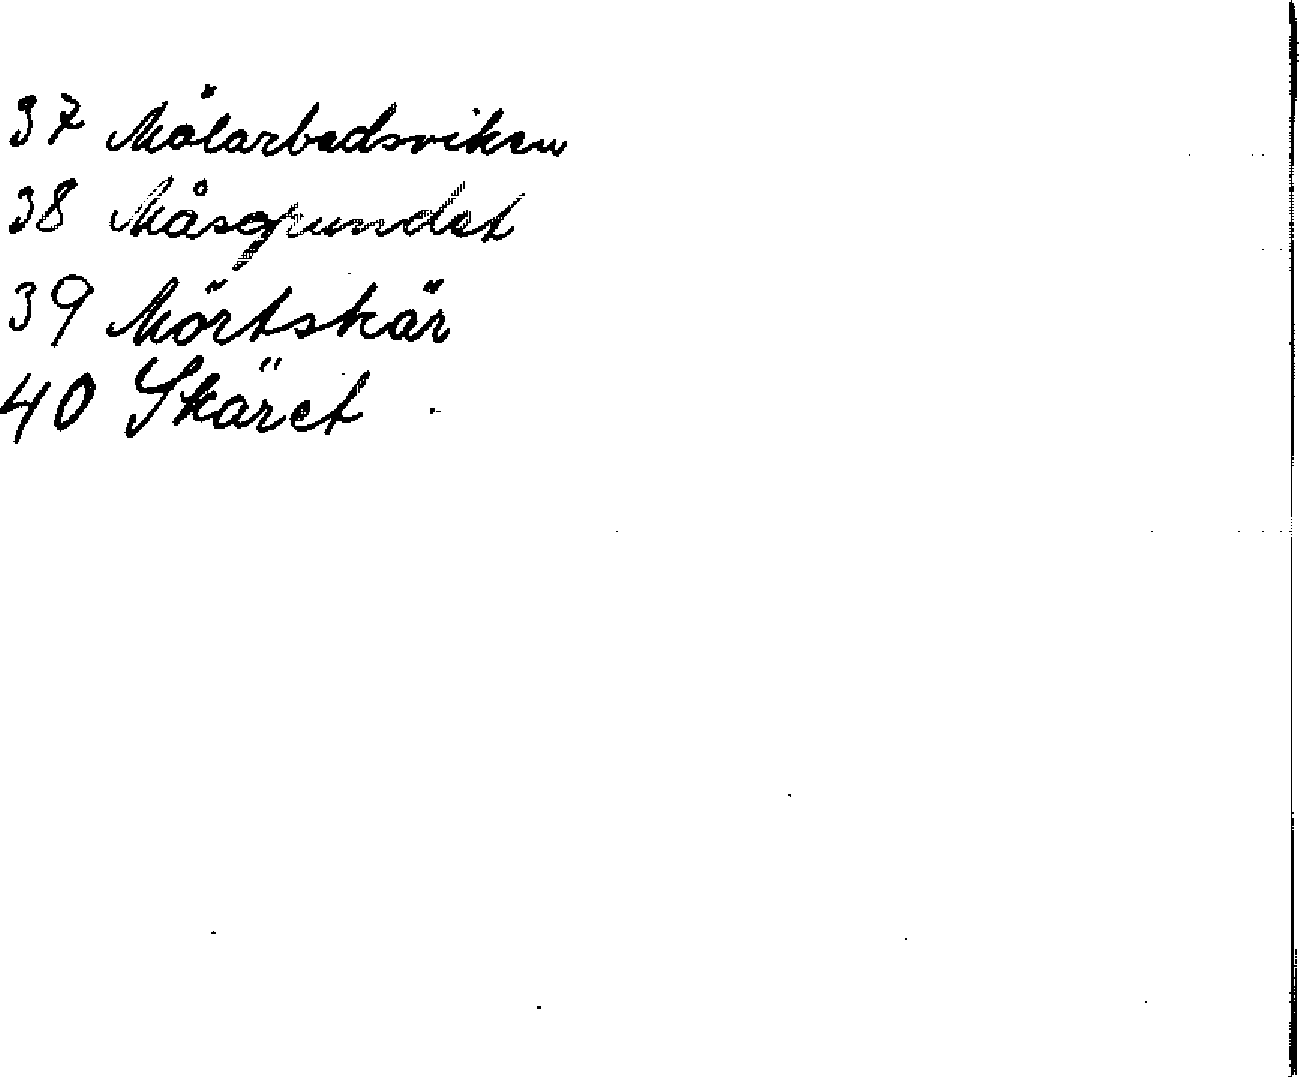 37 Målarbadsviken
38 Måsgrundet
39 Mörtskär
40 Skäret